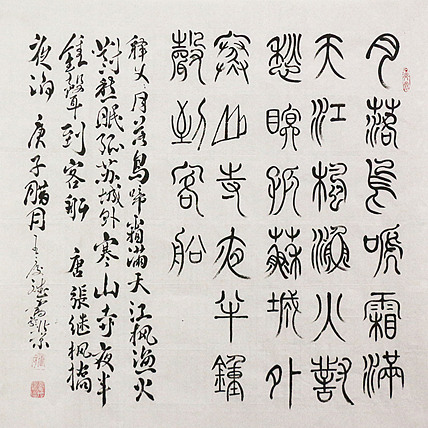 月落烏啼霜滿
天江楓漁火對
愁眠孤蘇城外
寒山寺夜半鐘
聲到客船
釋文月落烏啼霜滿天江楓漁火
對愁眠孤苏城外寒山寺夜半
鐘聲到客船 唐張继枫橋
夜泊 庚子腊月